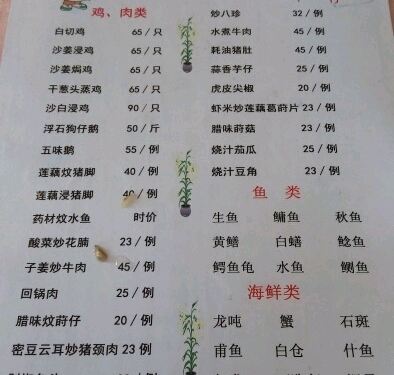 鸡、肉类
白切鸡 65/只
沙姜浸鸡 65/只
沙姜焗鸡 65/只
干葱头蒸鸡 65/只
沙白浸鸡 90/只
浮石狗仔鹅 50/斤
五味鹅 55/例
莲藕炆猪脚 40/例
莲藕浸猪脚 40/例
药材炆水鱼 时价
酸菜炒花腩 23/例
子姜炒牛肉 45/例
回锅肉 25/例
腊味炆莳仔 20/例
密豆云耳炒猪颈肉 23 例
炒八珍 32/例
水煮牛肉 45/例
耗油猪肚 45/例
蒜香芋仔 25/例
虎皮尖椒 20/例
虾米炒莲藕葛莳片 23/例
腊味莳菇 23/例
烧汁茄瓜 25/例
烧汁豆角 23/例
鱼类
生鱼 鳙鱼 秋鱼
黄鳝 白鳝 鲶鱼
鳄鱼龟 水鱼 鲗鱼
海鲜类
龙吨 蟹 石斑
甫鱼 白仓 什鱼